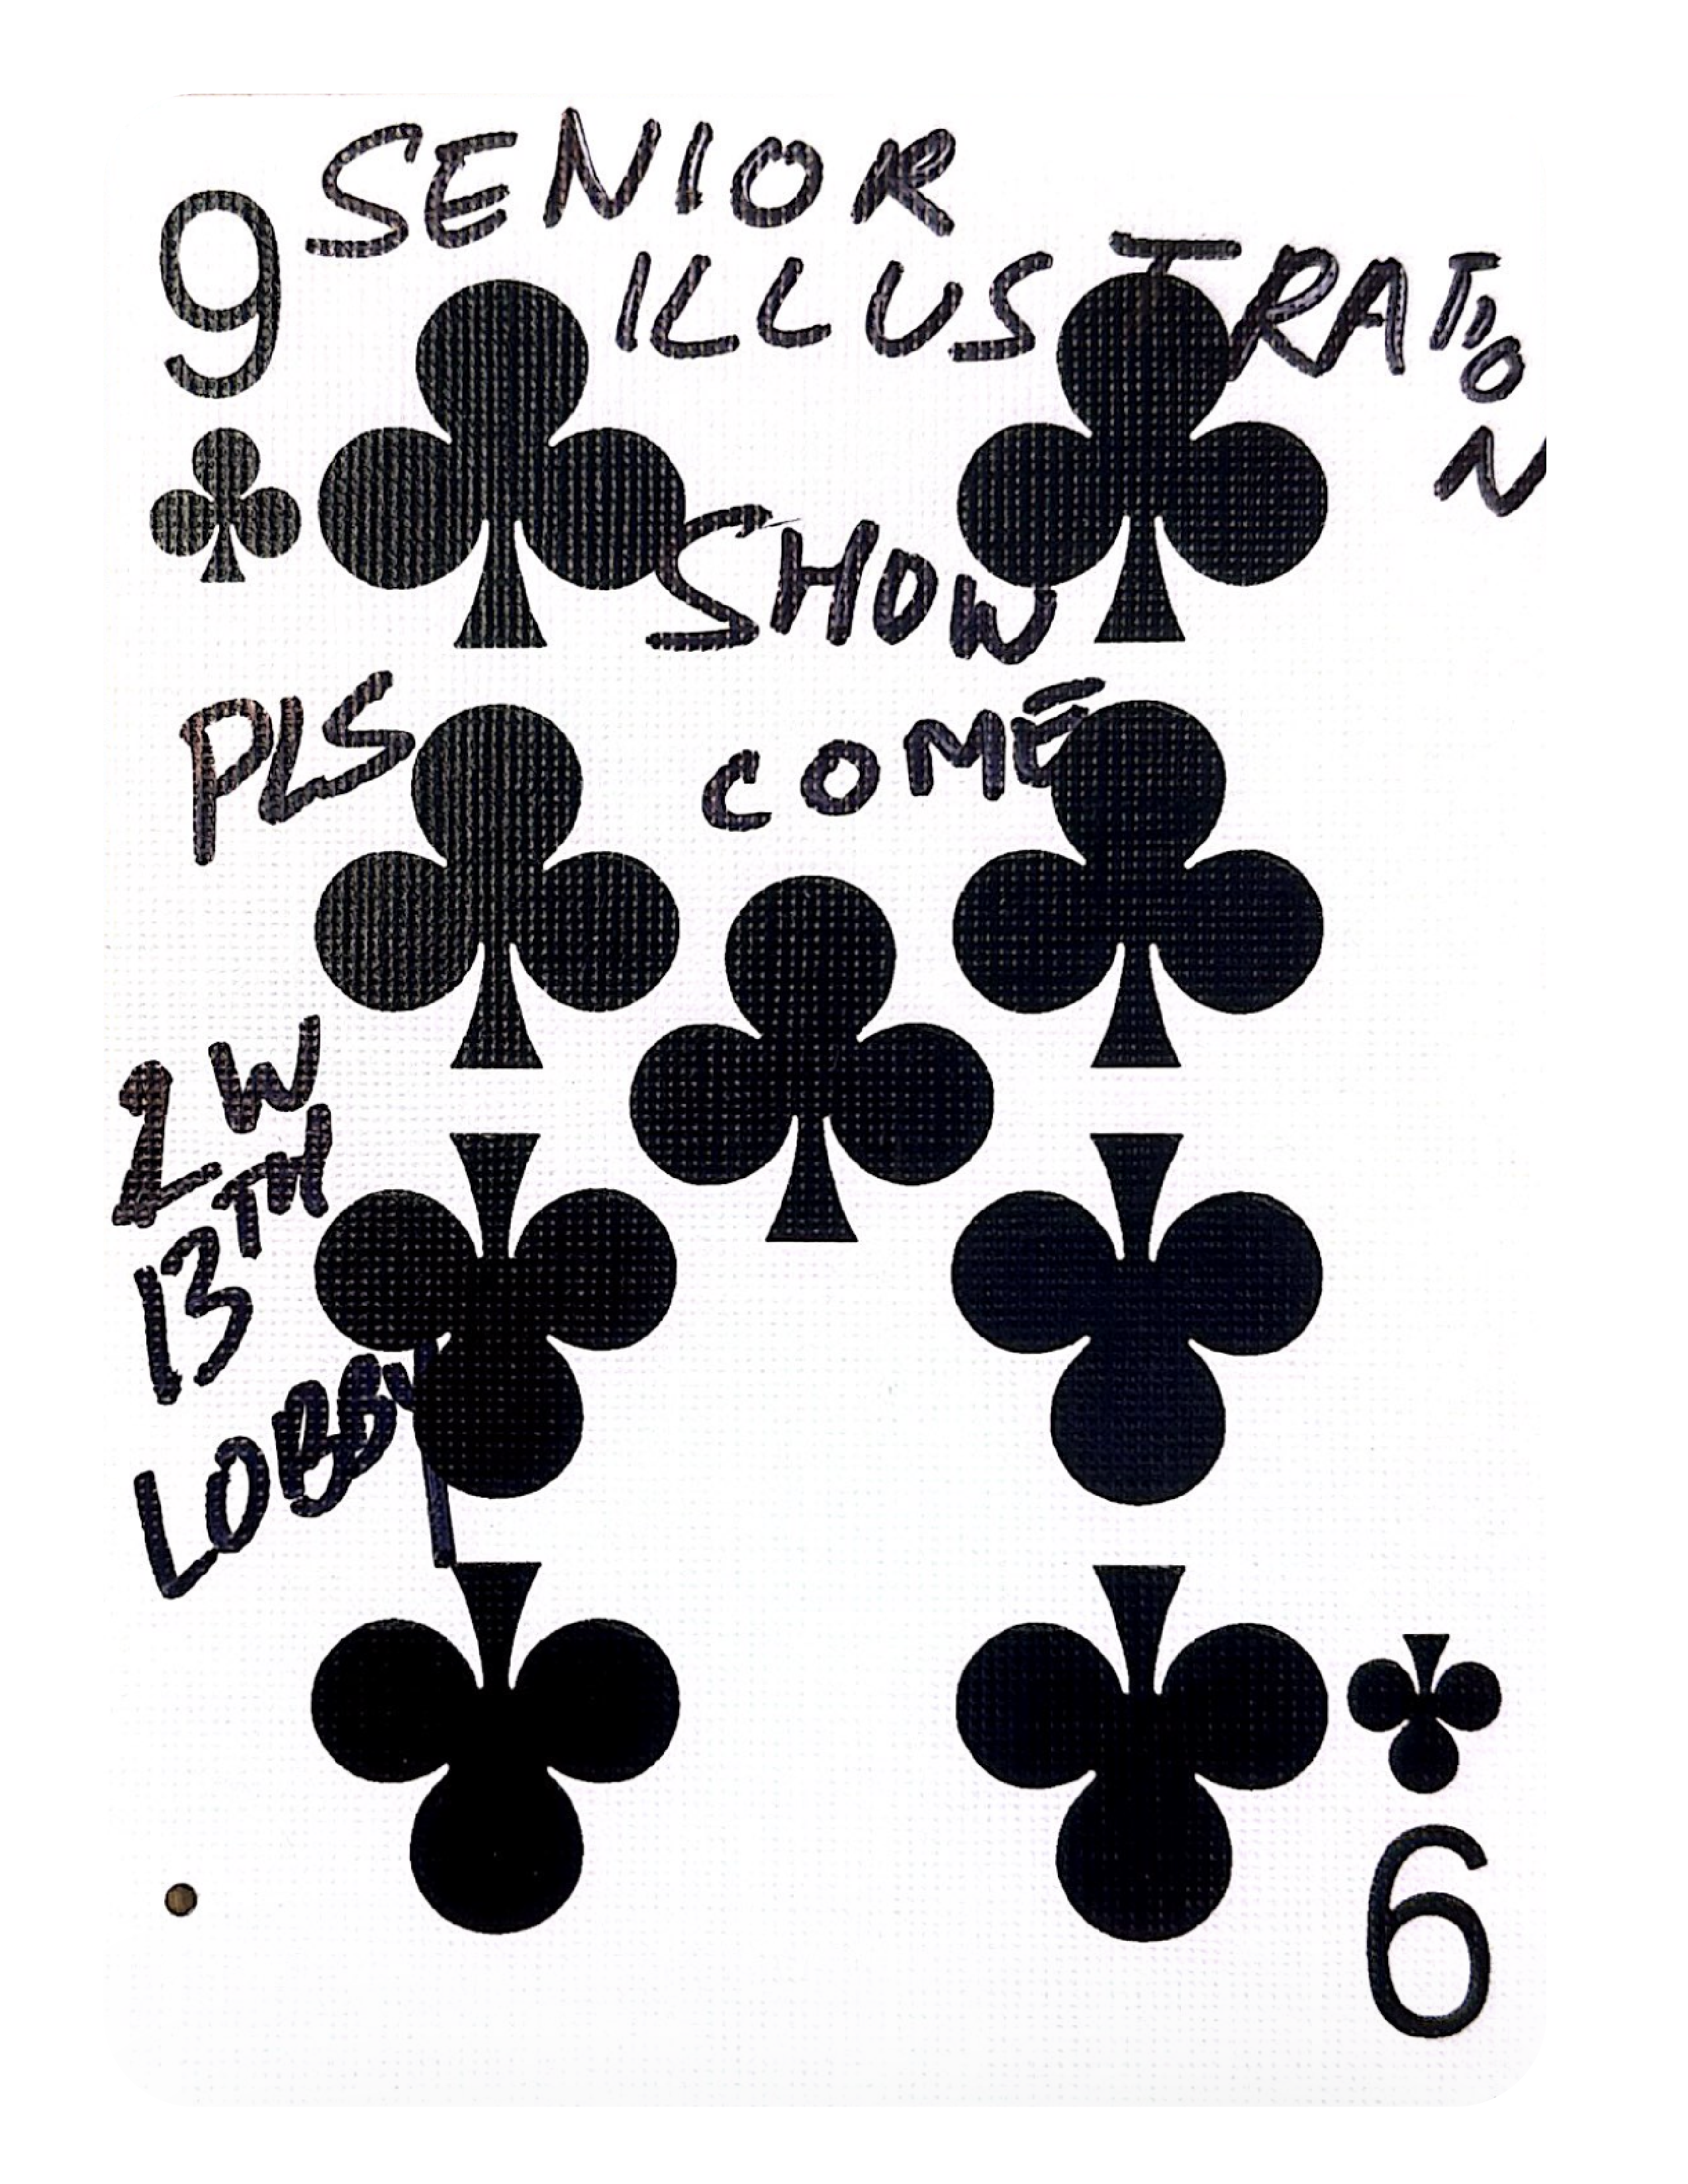 9
SENIOR
ILLUSTRATION
SHOW
PLS COME
2 W
13TH
LOBBY
9